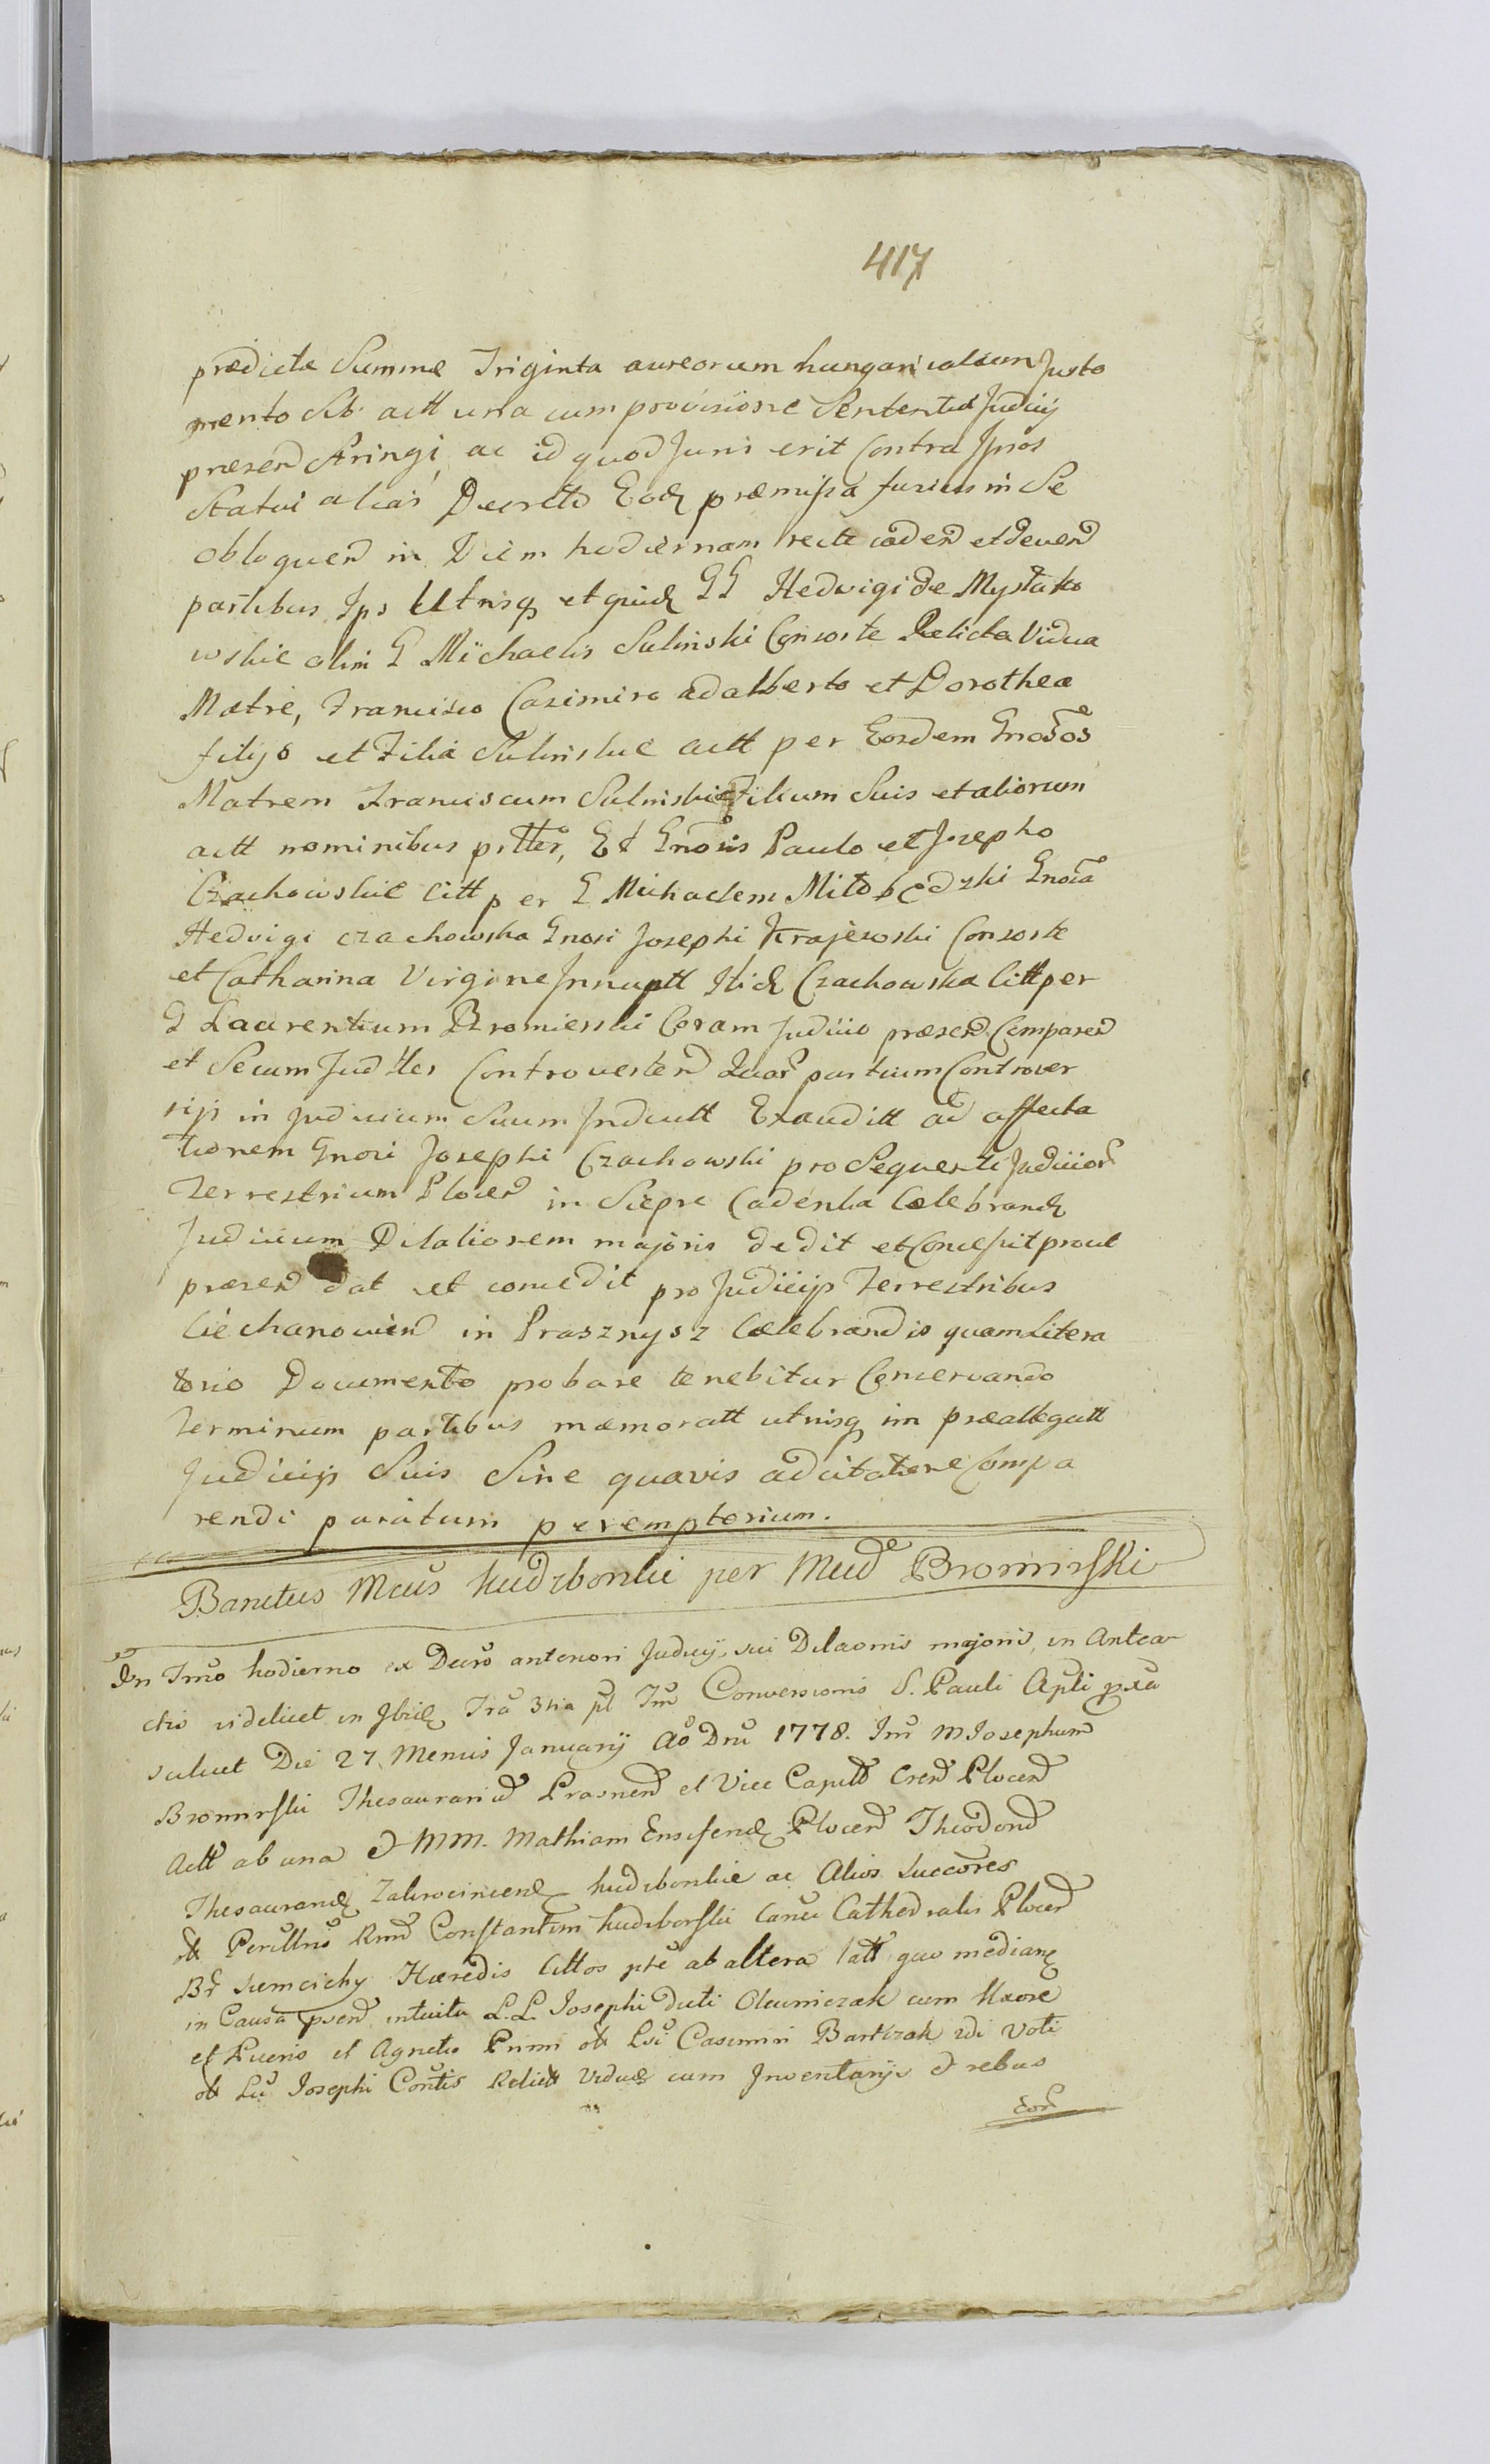 417
prædictæ Summæ Triginta aureorum hungaricalium Justo
mento Sb actt una cum provisione Sententia Judicij
præsen stringi ac id quod Juris erit Contra Ipsos
Statui alias Decreto Eod præmissa fusius in Se
obloquen in Diem hodiernam recte caden et deven
partibus Ips Utrisq et quid GG Hedvigi de Mystko
wskie olim G Michaelis Suliński Consorte Relicta Vidua
Matre, Francisco Casimiro Adalberto et Dorothea
filijs et Filia Sulinskie actt per Eosdem Gnosos
Matrem Franciscum Sulinskie Filium Suis et aliorum
actt nominibus pttter, Et Gnosis Paulo et Josepho
Czachowskie Citt per G Michaelem Miłobędzki Gnosa
Hedvigi Czachowska Gnosi Josephi Krajewski Consorte
et Catharina Virgine Innuptt Itid Czachowska Citt per
G Laurentium Bromierski Coram Judicio præsen Comparen
et Secum Judtter Controverten Quar partium Controver
sijs in Judicium Suum Inductt Exauditt ad affecta
tionem Gnosi Josephi Czachowski pro Sequenti Judicior
Terrestrium Plocen in Siepre Cadentia Cælebrand
Judicium Dilationem majoris dedit et Concessit prout
præsen dat et concedit pro Judicijs Terrestribus
Ciechanovien in Prasznysz Cælebrandis quam Litera
torio Documento probare tenebitur Conservando
Terminum partibus memoratt utrisq in præallegatt
Judicijs Suis Sine quavis adcitatione Compa
rendi paratum peremptorium.
Banitus Mcus Kudzborskie per Mcid Bromirski
In Tmo hodierno ex Decro anteriori Judicij sui Dilaonis majoris, in Antea
cto videlicet in Jbid Tra 3tia pt Tm Conversionis S. Pauli Apli pxa
scilicet Die 27 Mensis Januarij Ao Dni 1778. Inr M Josephum
Bromirski Thesaurarium Prasnen et Vice Capitt Cren Plocen
Actt ab una et MM. Mathiam Ensiferid Plocen Theodor
Thesaurarid Zakrocimien Kudzborskie ac Alios Succores
ott Perillris Rmd Constantini Kudzborski Canci Cathedralis Plocen
Br Siemcichy Hæredis Cittos pte ab altera latt quo median
in Causa psen intuitu L.L. Josephi dicti Olewniczak cum Uxore
et Pueris et Agnetis Primi ott Lsi Casimiri Bartczak 2di Voti
ott Lsi Josephi Contis Relictt Viduæ cum Inventarijs et rebus
Eor